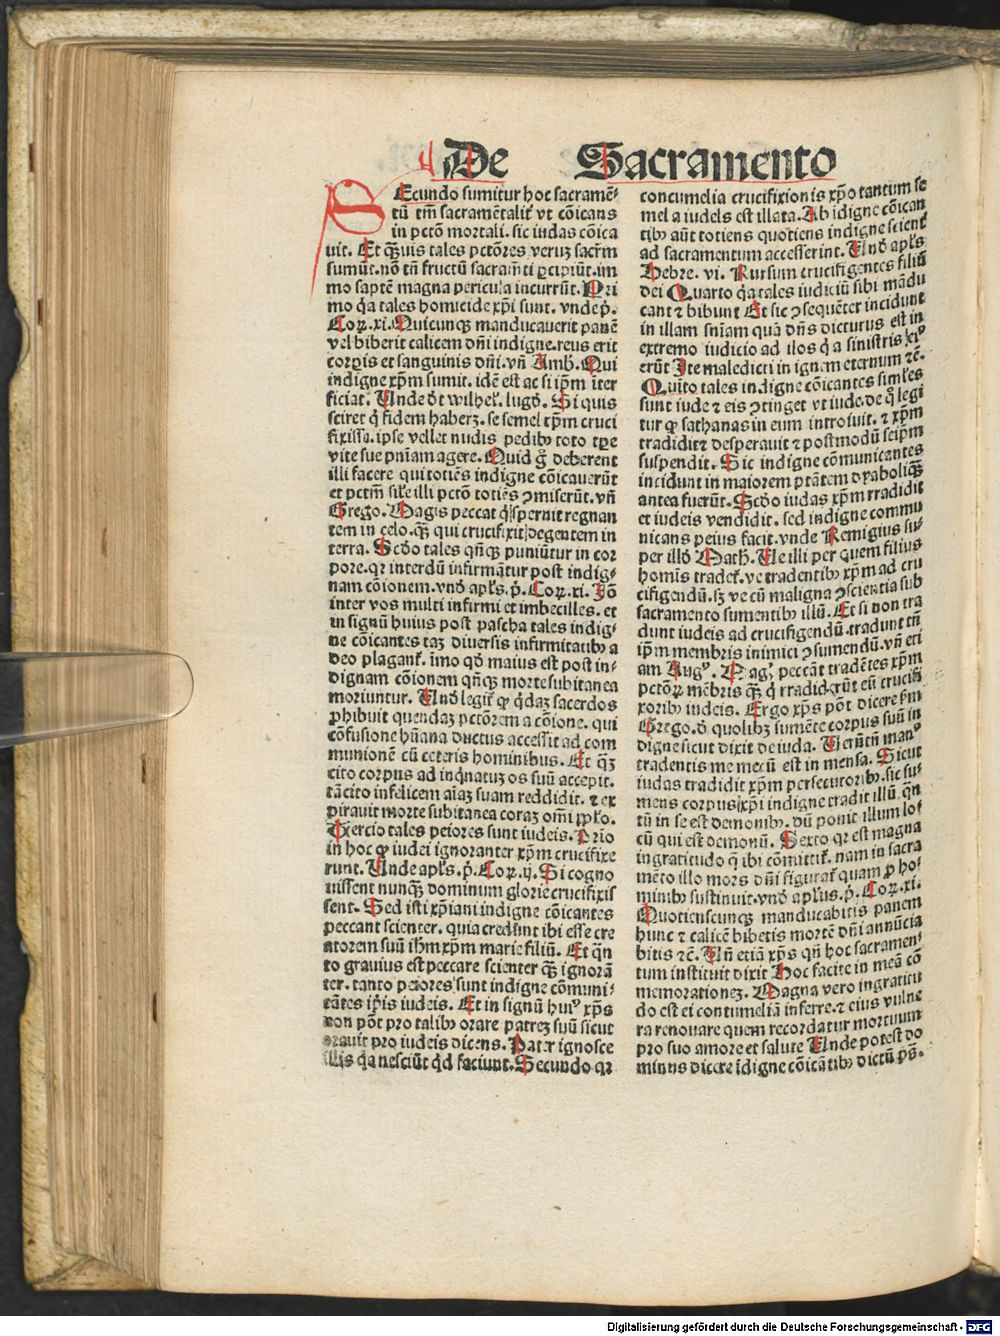 De Sacramento
SEcundo sumitur hoc sacramē-
tū tm̄ sacramētalit̄ vt cōicans
in pctō mortali. sic iudas cōica
uit. Et q̄uis tales pctōres veruꝫ sacr̄m
sumūt. nō tn̄ fructū sacram̄ti ꝑcipiūt. im
mo saptē magna pericula incurrūt. Pri
mo q̇a tales homicide xp̄i sunt. vnde p̄.
Coꝝ. xi. Quicunqꝫ manducauerit panē
vel biberit calicem dn̄i indigne. reus erit
corꝑis et sanguinis dn̄i. vn̄ Amb̄. Qui
indigne xp̄m sumit. idē est ac si ip̄m iter
ficiat. Unde d̄t wilhel̄. lugd̄. Si quis
sciret q̇ fidem haberꝫ. se semel xp̄m cruci
fixissꝫ. ipse vellet nudis pedibꝫ toto tꝑe
vite sue pn̄iam agere. Quid g̊ deberent
illi facere qui totiēs indigne cōicauerūt
et pctm̄ sil̄e illi pctō totiēs ꝯmiserūt. vn̄
Grego. Magis peccat q̇ spernit regnan
tem in celo. q̄ꝫ qui crucifixit degentem in
terra. Scd̄o tales qn̄qꝫ puniūtur in cor
pore. qꝛ interdū infirmātur post indig-
nam cōionem. vnd̄ apl̄s. p̄. Coꝝ. xi. Jō
inter vos multi infirmi et imbecilles. et
in signū huius post pascha tales indig-
ne cōicantes taꝫ diuersis infirmitatibꝫ a
deo plagant̄. īmo qd̄ maius est post in-
dignam cōionem qn̄qꝫ morte subitanea
moriuntur. Und̄ legit̄ ꝙ q̇daꝫ sacerdos
ꝓhibuit quendaꝫ pctōrem a cōione. qui
cōfusione hūana ductus accessit ad com
munionē cū ceteris hominibus. Et qꝫ
cito corpus ad inq̇natuꝫ os suū accepit.
tā cito infelicem aīaꝫ suam reddidit. ⁊ ex
pirauit morte subitanea coraꝫ om̄i ꝑpl̄o.
Tercio tales peiores sunt iudeis. Prio
in hoc ꝙ iudei ignoranter xp̄m crucifixe
runt. Unde apl̄s. p̄. Coꝝ. ij. Si cogno
uissent nunqꝫ dominum glorie crucifixis
sent. Sed isti xp̄iani indigne cōicantes
peccant scienter. quia credunt ibi esse cre
atorem suū ih̄m xp̄m marie filiū. Et qn̄
to grauius est peccare scienter q̄ꝫ ignorā
ter. tanto peiores sunt indigne cōmuni-
cātes ip̄is iudeis. Et in signū huiꝰ xp̄s
non pōt pro talibꝫ orare patreꝫ suū sicut
orauit pro iudeis dicens. Pater ignosce
illis q̇a nesciūt qd̄ faciunt. Secundo qꝛ
concumelia crucifixionis xp̄o tantum se
mel a iudeis est illata. Ab īdigne cōican
tibꝫ aūt totiens quotiens indigne scient̄
ad sacramentum accesserint. Und̄ apl̄s
Hebre. vi. Rursum crucifigentes filiū
dei Quarto q̇a tales iudiciū sibi mādu
cant ⁊ bibunt Et sic ꝯsequēter incidunt
in illam sn̄iam quā dn̄s dicturus est in
extremo iudicio ad ilos q̇ a sinistris eiꝰ
erūt Ite maledicti in ignem eternum ⁊c̄.
Quīto tales indigne cōicantes similes
sunt iude ⁊ eis ꝯtinget vt iude. de q̊ legi
tur ꝙ sathanas in eum introiuit. ⁊ xp̄m
tradidit ⁊ desperauit ⁊ postmodū seip̄m
suspendit. Sic indigne cōmunicantes
incidunt in maiorem ptātem dyaboliqꝫ
antea fuerūt. Scd̄o iudas xp̄m tradidit
et iudeis vendidit. sed indigne commu
nicans peius facit. vnde Remigius su-
per illd̄ Math̄. Ue illi per quem filius
homīs tradet̄. ve tradentibꝫ xp̄m ad cru
cifigendū. sꝫ ve cū maligna ꝯscientia sub
sacramento sumentibꝫ illū. Et si non tra
dunt iudeis ad crucifigendū. tradunt tn̄
ip̄m membris inimici ꝯsumendū. vn̄ eti
am Augꝰ. Magꝭ peccāt tradētes xp̄m
pctōꝝ mēbris q̄ꝫ q̇ tradiderūt eū crucifi
xoribꝫ iudeis. Ergo xp̄s pōt dicere ꝑm
Grego. d̄ quolibꝫ sumēte corpus suū in
digne sicut dixit de iuda. Ueꝝtn̄ manꝰ
tradentis me mecū est in mensa. Sicut
iudas tradidit xp̄m persecutoribꝫ. sic su-
mens corpus xp̄i indigne tradit illū. qn̄
tū in se est demonibꝫ. dū ponit illum lo
cū qui est demonū. Sexto qꝛ est magna
ingratitudo q̄ ibi cōmittit̄. nam in sacra
mēto illo mors dn̄i figurat̄ quam ꝓ ho-
minibꝫ sustinuit. vnd̄ apl̄us. p̄. Coꝝ. xi.
Quotienscunqꝫ manducabitis panem
hunc ⁊ calicē bibetis mortē dn̄i annūcia
bitis ⁊c̄. Un̄ etiā xp̄s qn̄ hoc sacramen-
tum instituit dixit Hoc facite in meā cō
memorationeꝫ. Magna vero ingratitu
do est ei contumeliā inferre. ⁊ eius vulne
ra renouare quem recordatur mortuum
pro suo amore et salute Unde potest do
minus dicere īdigne cōicātibꝫ dictū ps̄.
Digitalisierung gefördert durch die Deutsche Forschungsgemeinschaft - DFG